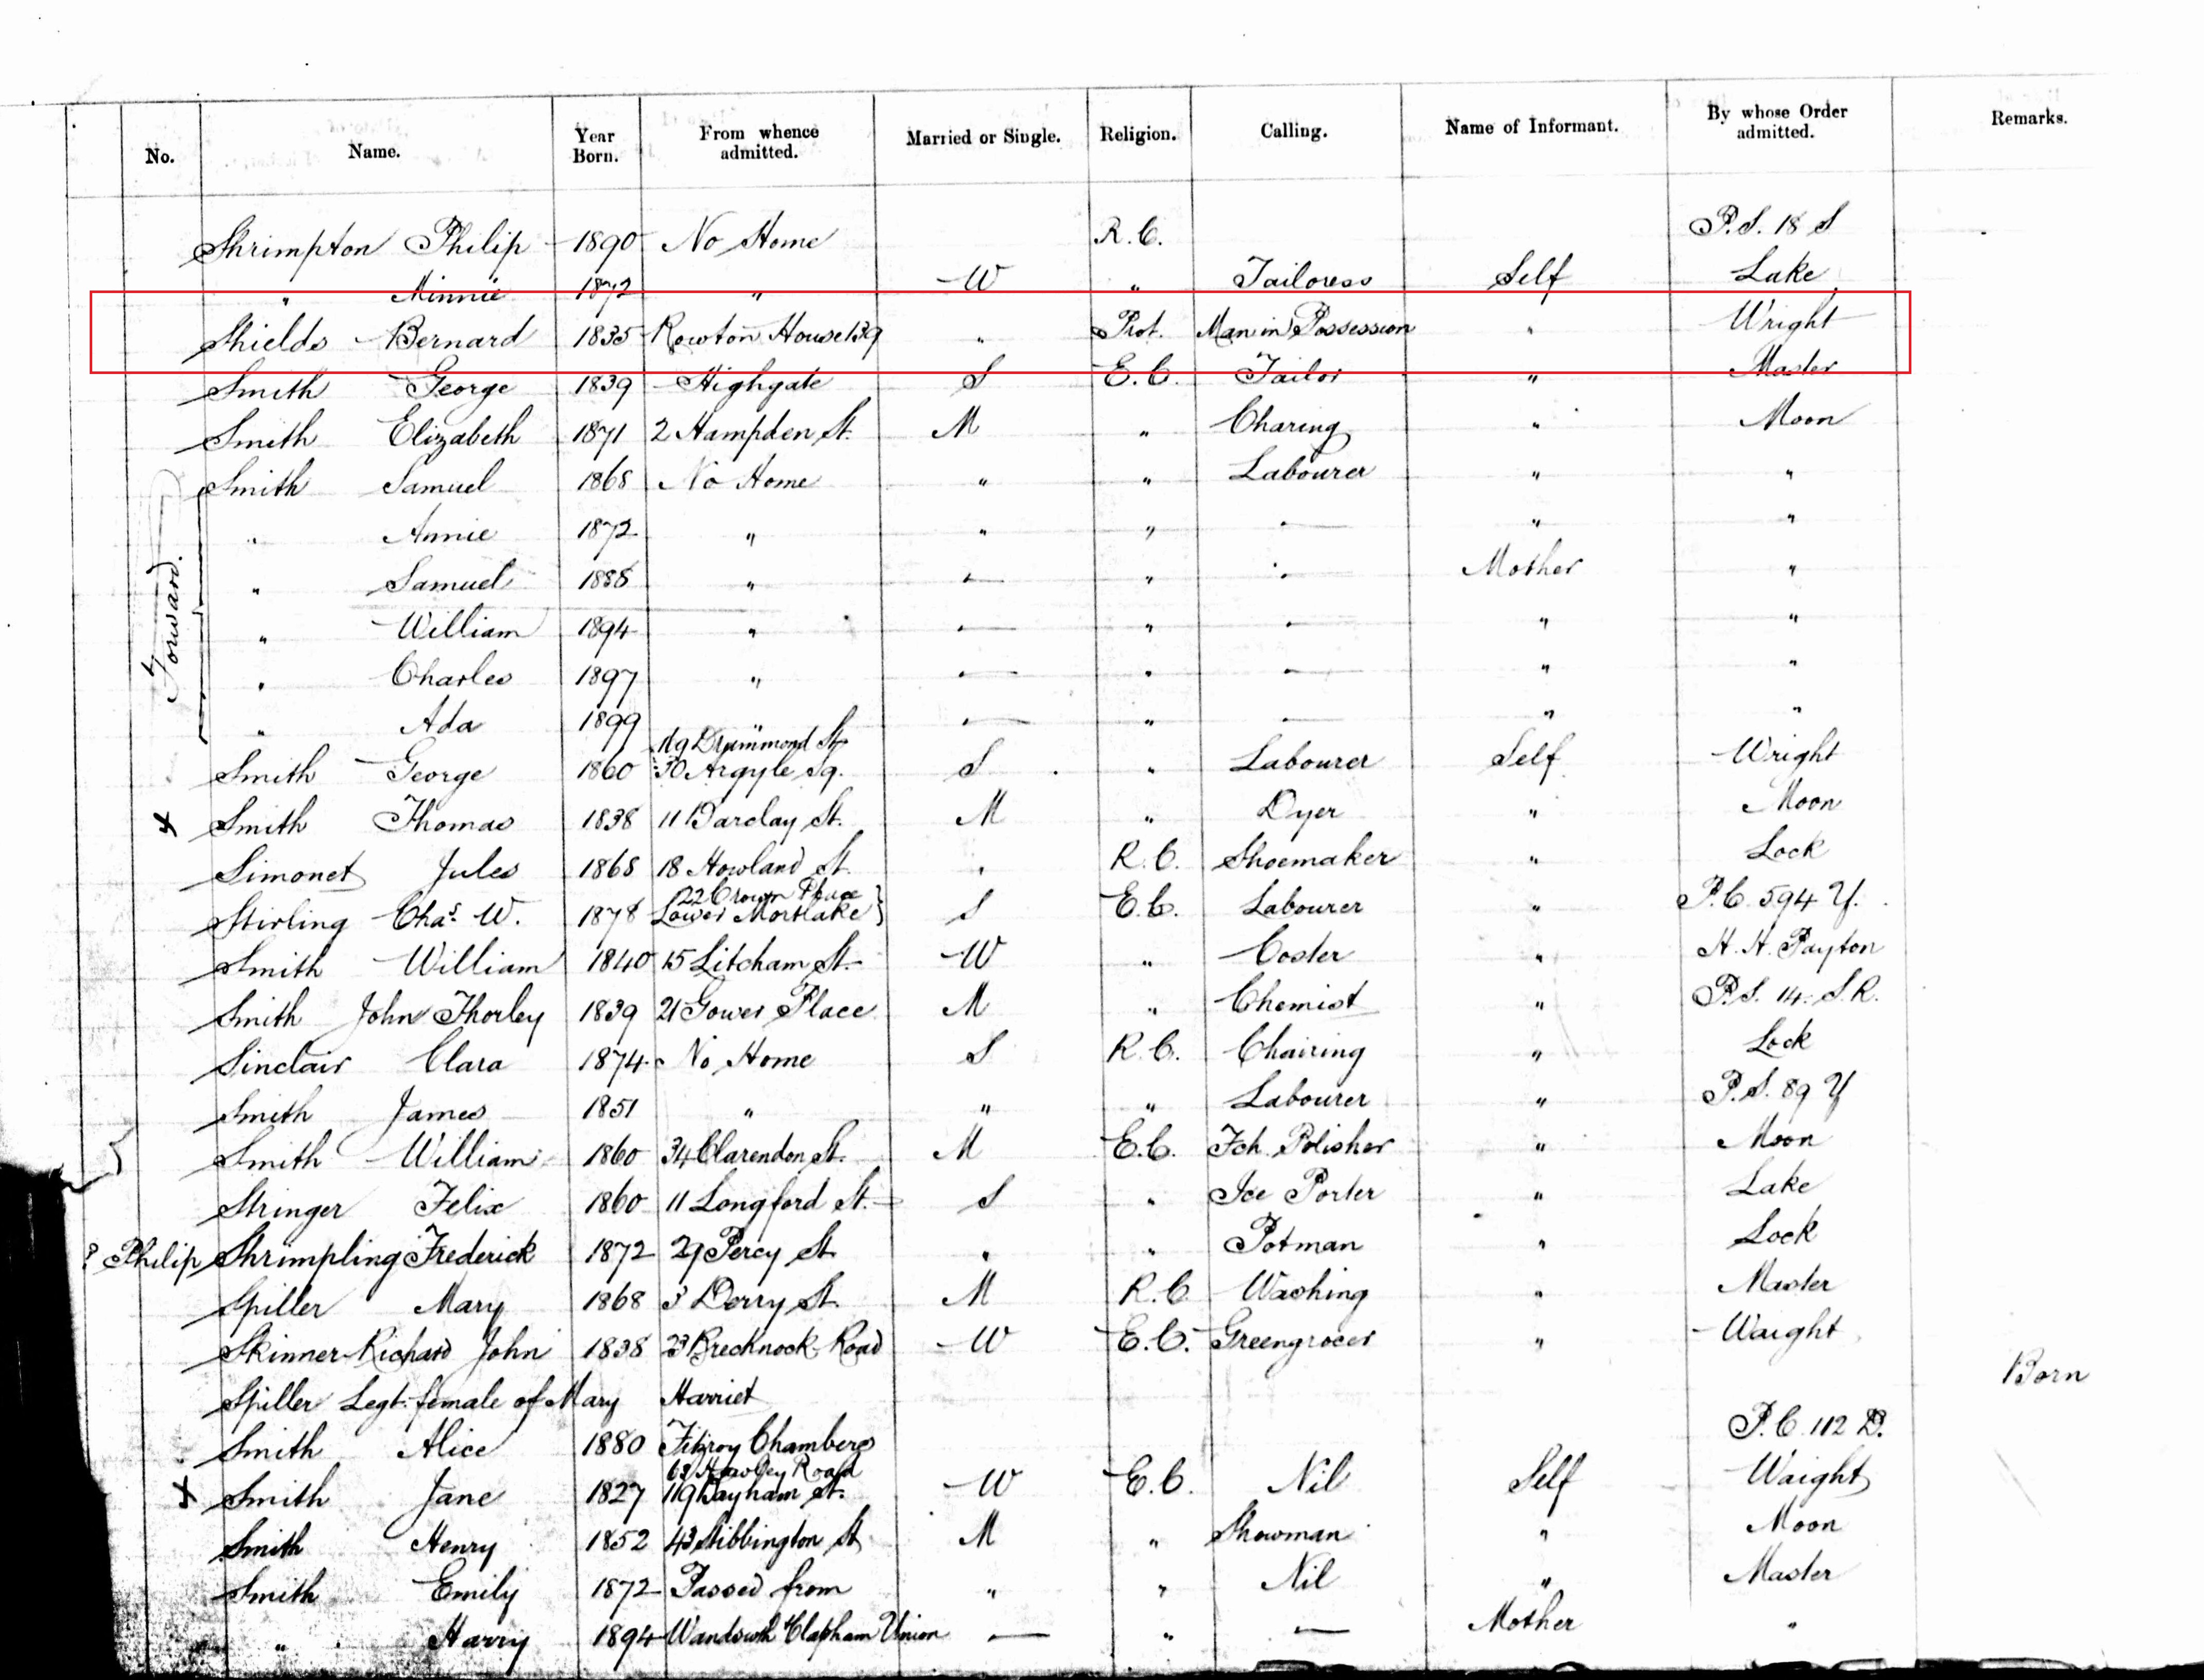 No. Name. Year Born. From whence admitted. Married or Single. Religion. Calling. Name of Informant. By whose Order admitted. Remarks.
Shrimpton Philip 1890 No Home R.C. P.S. 18 S
" Minnie 1872 " W " Tailoress Self Lake
Shields Bernard 1835 Rowton House 139 " Prot. Man in Possession " Wright
Smith George 1839 Highgate S E.C. Tailor " Master
Smith Elizabeth 1871 2 Hampden St. M " Charing " Moon
Smith Samuel 1868 No Home " " Labourer " "
" Annie 1872 " " " — " "
Forward.
" Samuel 1898 " — " — Mother "
" William 1894 " — " — " "
" Charles 1897 " — " — " "
" Ada 1899 " — " — " "
119 Drummond St.
Smith George 1860 30 Argyle Sq. S " Labourer Self Wright
Smith Thomas 1838 11 Barclay St. M " Dyer " Moon
Simonet Jules 1868 18 Howland St. " R.C. Shoemaker " Lock
22 Crown Place
Stirling Chas. W. 1878 Lower Mortlake } S E.C. Labourer " P.C. 594 Y.
Smith William 1840 15 Litcham St. W " Coster " H. H. Payton
Smith John Thorley 1839 21 Gower Place M " Chemist " P.S. 14. S.R.
Sinclair Clara 1874 No Home S R.C. Chairing " Lock
Smith James 1851 " " " Labourer " P.S. 89 Y
Smith William 1860 34 Clarendon St. M E.C. Fch. Polisher " Moon
Stringer Felix 1860 11 Longford St. S " Ice Porter " Lake
? Philip Shrimpling Frederick 1872 29 Percy St. " " Potman " Lock
Spiller Mary 1868 3 Derry St. M R.C. Washing " Master
Skinner Richard John 1838 23 Brecknock Road W E.C. Greengrocer " Waight
Spiller Legt. female of Mary Harriet Born
Smith Alice 1880 Fitzroy Chambers P.C. 112 D.
63 Hawley Road
Smith Jane 1827 119 Bayham St. W E.C. Nil Self Waight
Smith Henry 1852 43 Stibbington St. M " Showman " Moon
Smith Emily 1872 Passed from " " Nil " Master
" Harry 1894 Wandswth Clapham Union — " — Mother "